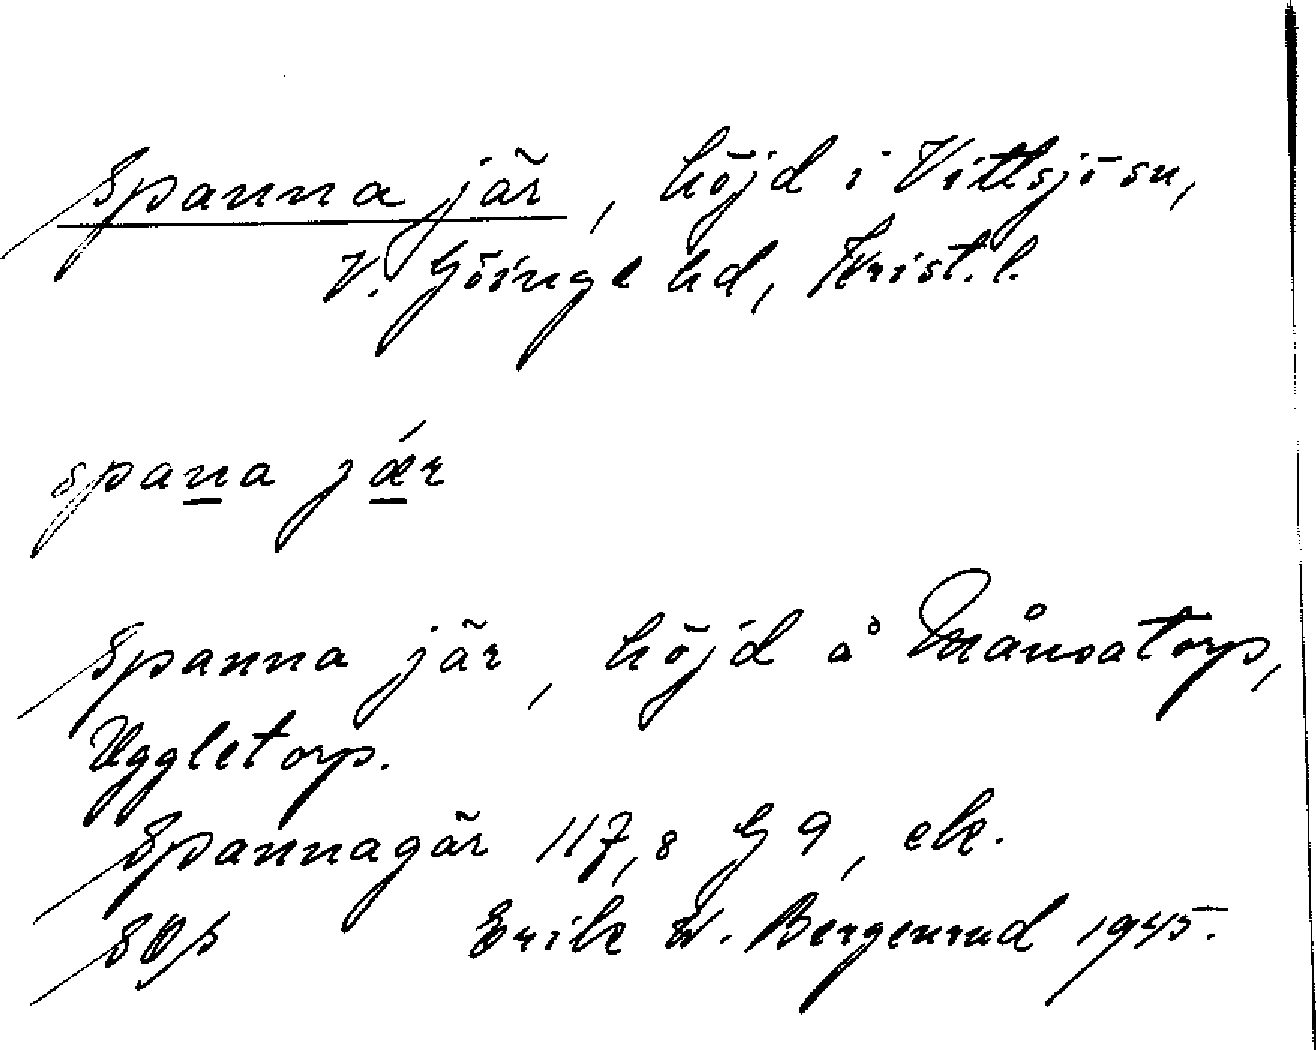 Spanna jär, höjd i Vittsjö sn,
V. Göinge hd, Krist. l.
spana jǽr
Spanna jär, höjd å Månsatorp,
Uggletorp.
Spannagär 117,8 G9, ek.
Erik W. Bergenrud 1945.